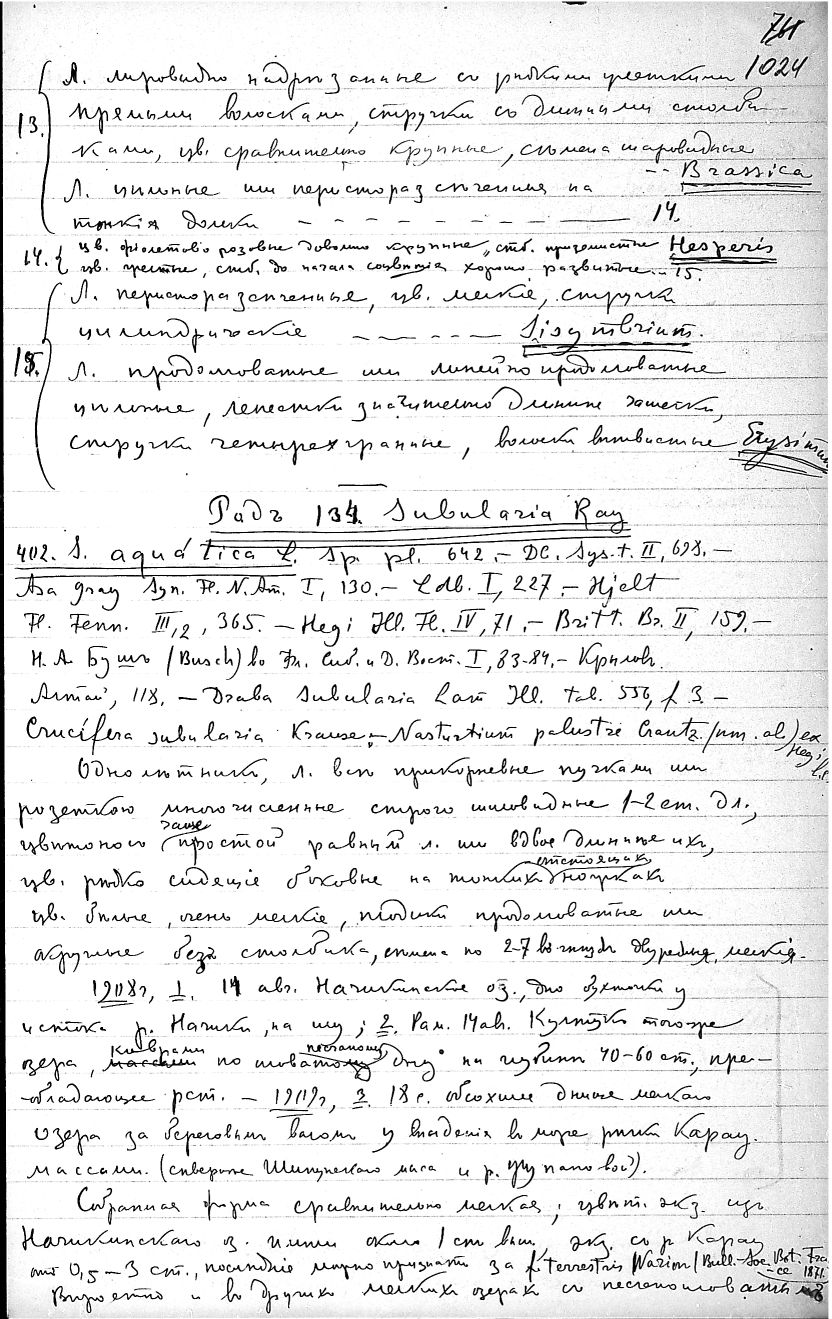 1024
Л. лировидно надрѣзанные со рѣдкими жесткими
13. прямыми волосками, стручки со длинными столби-
ками, цв. сравнительно крупные, сѣмена шаровидные
-- Brassica
Л. цѣльные или перисторазсѣченныя на
тонкія дольки – – – – – – 14.
14. { цв. фіолетово розовые довольно крупные, стб. Hesperis
цв. желтые, стб. до начала соцвѣтія хорошо развитые -- 15.
Л. перисторазсѣченные, цв. мелкіе, стручки
цилиндрическіе – – – – – Sisymbrium.
15. Л. продолговатые или линейно продолговатые
цѣльные, лепестки значительно длиннѣе чашечки,
стручки четырехгранные, волоски вѣтвистые Erysimum
Родъ 134. Subularia Ray
402. S. aquática L. Sp. pl. 642. – DC. Syst. II, 698. –
Asa Gray Syn. Fl. N. Am. I, 130. – Ldb. I, 227. – Hjelt
Fl. Fenn. III,2, 365. – Hegi Ill. Fl. IV, 71. – Britt. Br. II, 159. –
Н. А. Бушъ (Busch) во Фл. Сиб. и Д. Вост. I, 83-84. – Крыловъ
Алтай, 118. – Draba Subularia Lam Ill. tab. 556, f. 3. –
Crucífera subularia Krause; – Nasturtium palustre Crantz. ex
Hegi l.c.
Однолѣтникъ, л. всѣ прикорневые пучками или
розеткою многочисленные строго шиловидные 1-2 cm. дл.,
цвѣтоносъ чаще простой равный л. или вдвое длиннѣе ихъ,
цв. рѣдко сидящіе боковые на тонкихъ отстоящихъ ножкахъ
цв. бѣлые, очень мелкіе, плодики продолговатые или
округлые безъ столбика, сѣмена по 2-7 во гнѣздѣ двурядныя, мелкія.
1908г, 1. 14 авг. Начикинское оз., дно бухточки у
истока р. Начики, на илу; 2. 14 ав. Култукъ того же
озера, коврами по иловатому песчаному дну на глубинѣ 40-60 cm., пре-
обладающее раст. – 1909г, 3. 18 с. обсохшее днище мелкаго
озера за береговымъ валомъ у впаденія въ море рѣки Карау.
массами. (сѣвернѣе Шипунскаго мыса и р. Жупановой).
Собранная форма сравнительно мелкая; цвѣт. экз. изъ
Начикинскаго оз. имѣли около 1 cm выш. экз. со р. Карау
отъ 0,5 – 3 cm., послѣдніе можно признать за f. terrestris (Bull. Soc. Bot. Fra-
ce 1871.
Вѣроятно и во другихъ мелкихъ озерахъ со